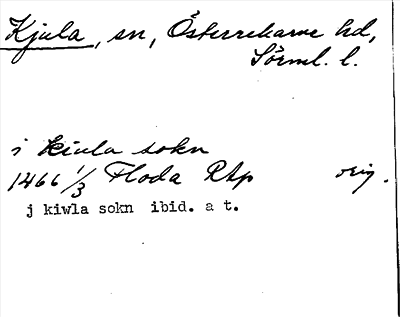 Kjula, sn, Österrekarne hd,
Sörml. l.
i kiula sokn
1466 1/3 Floda RAp orig.
j kiwla sokn ibid. a t.